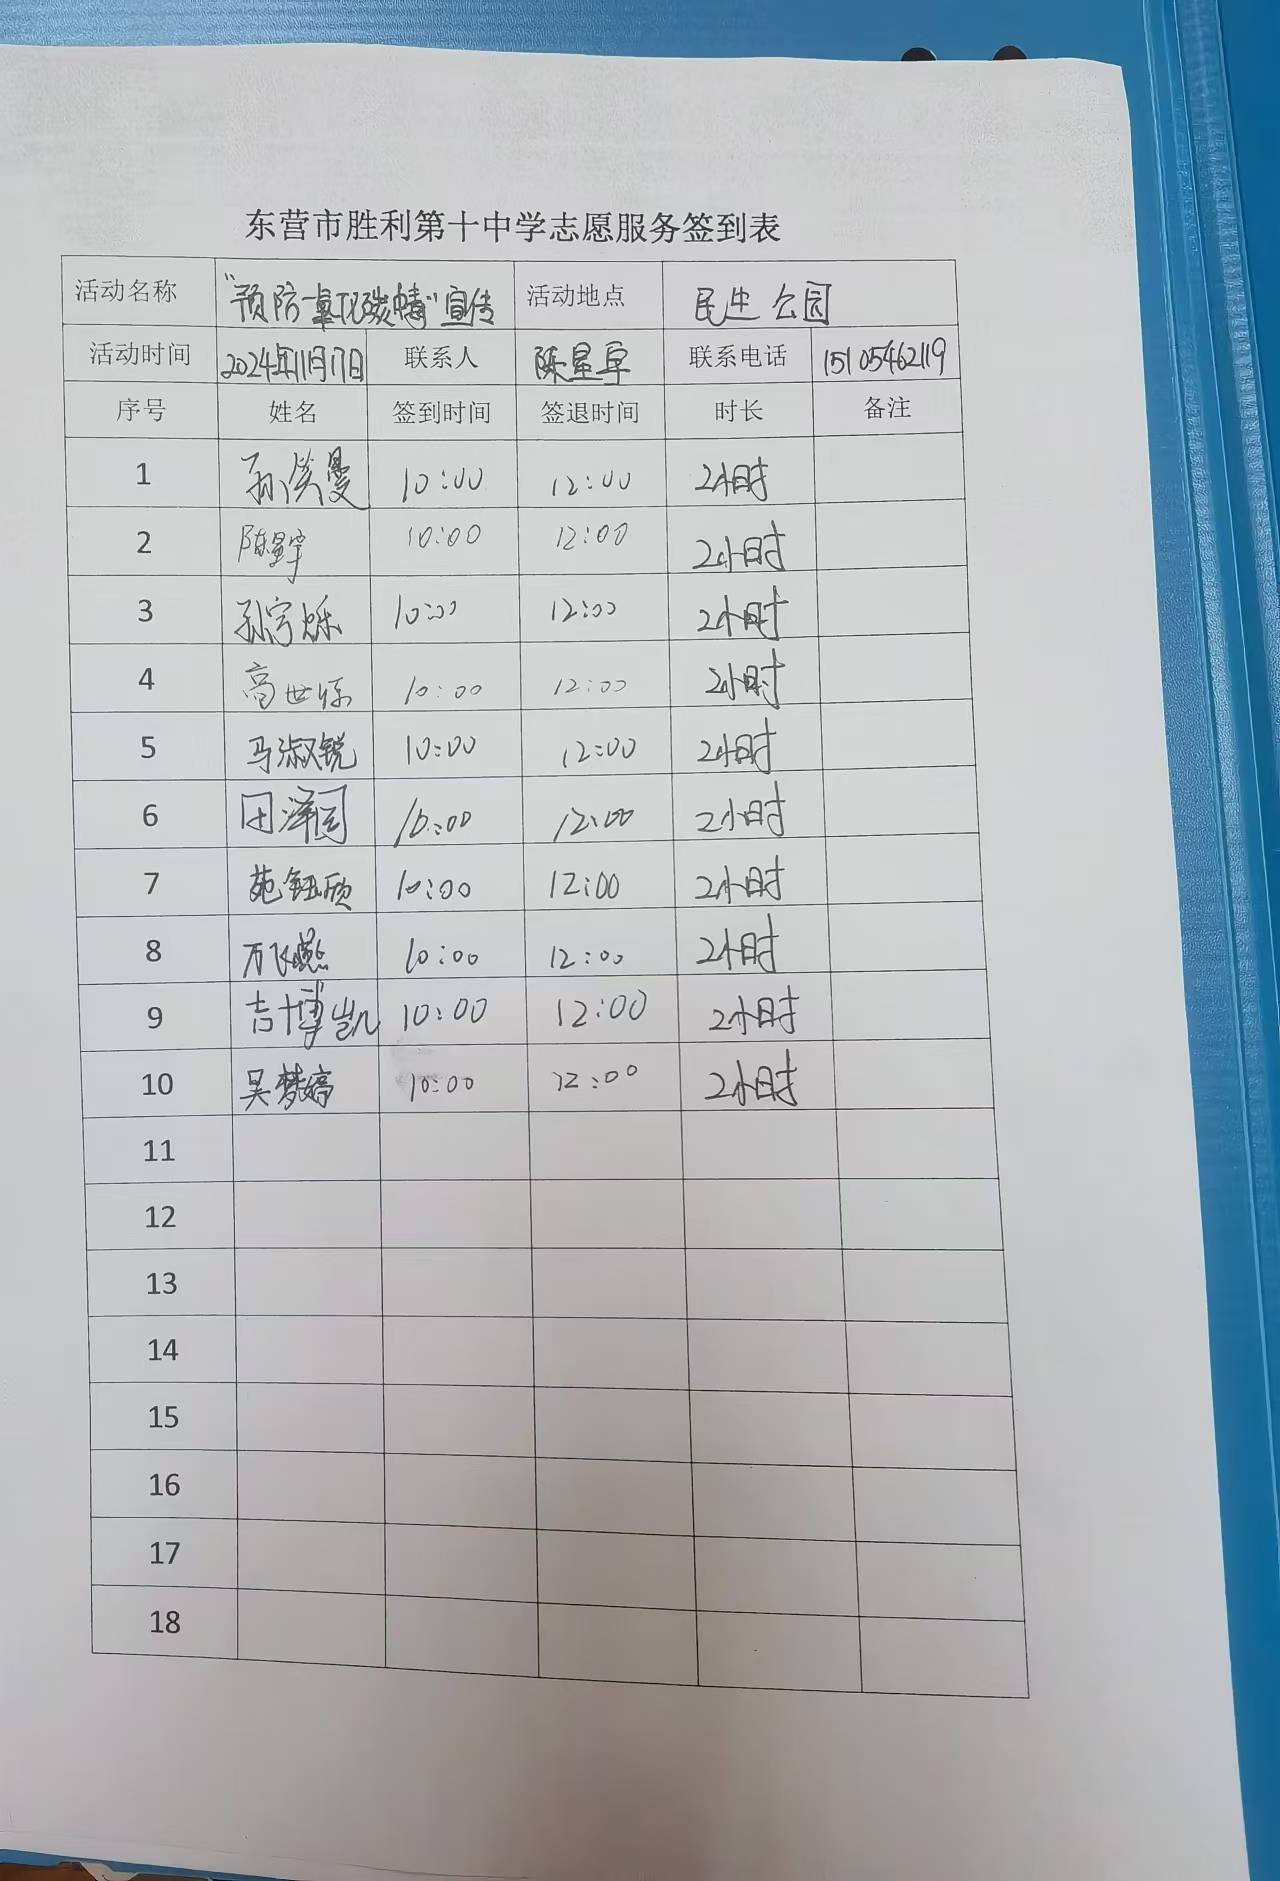 东营市胜利第十中学志愿服务签到表
活动名称 "预防一氧化碳中毒"宣传 活动地点 民生公园
活动时间 2024年11月17日 联系人 陈星宇 联系电话 15105462119
序号 姓名 签到时间 签退时间 时长 备注
1 孙 曼 10:00 12:00 2小时
2 陈星宇 10:00 12:00 2小时
3 孙宇烁 10:00 12:00 2小时
4 高世 10:00 12:00 2小时
5 马淑锐 10:00 12:00 2小时
6 田泽园 10:00 12:00 2小时
7 苑钰欣 10:00 12:00 2小时
8 万飞燕 10:00 12:00 2小时
9 吉博凯 10:00 12:00 2小时
10 吴梦婷 10:00 12:00 2小时
11
12
13
14
15
16
17
18